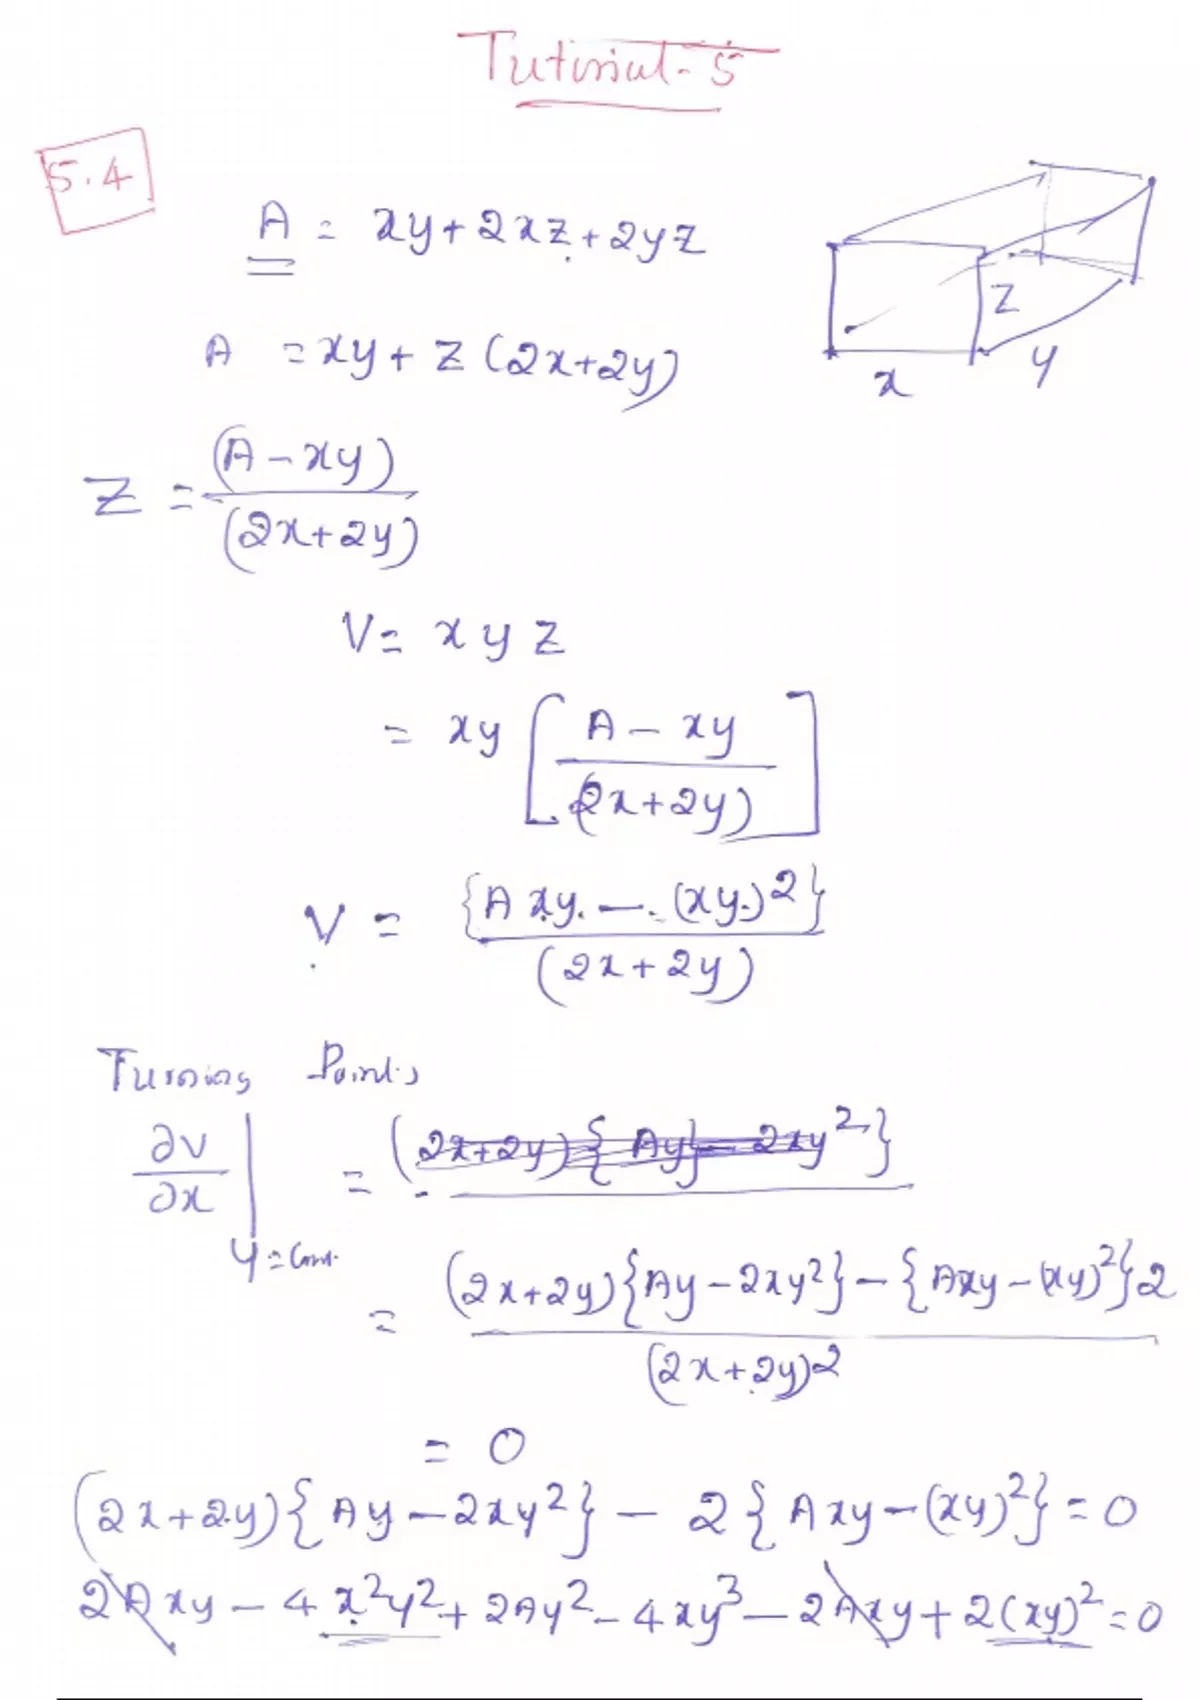 Tutorial-5
5.4
A = xy + 2xz + 2yz
A = xy + z (2x+2y)
z
x
y
Z = (A - xy) / (2x+2y)
V = x y z
= xy [ A - xy / (2x+2y) ]
V = {A xy - (xy)2} / (2x+2y)
Turning Points
∂v/∂x | y = Const. = (2x+2y){Ay - 2xy²}
= (2x+2y){Ay - 2xy²} - {Axy - (xy)²}2 / (2x+2y)2
= 0
(2x+2y){Ay - 2xy²} - 2{Axy - (xy)²} = 0
2Axy - 4x²y² + 2Ay² - 4xy³ - 2Axy + 2(xy)² = 0